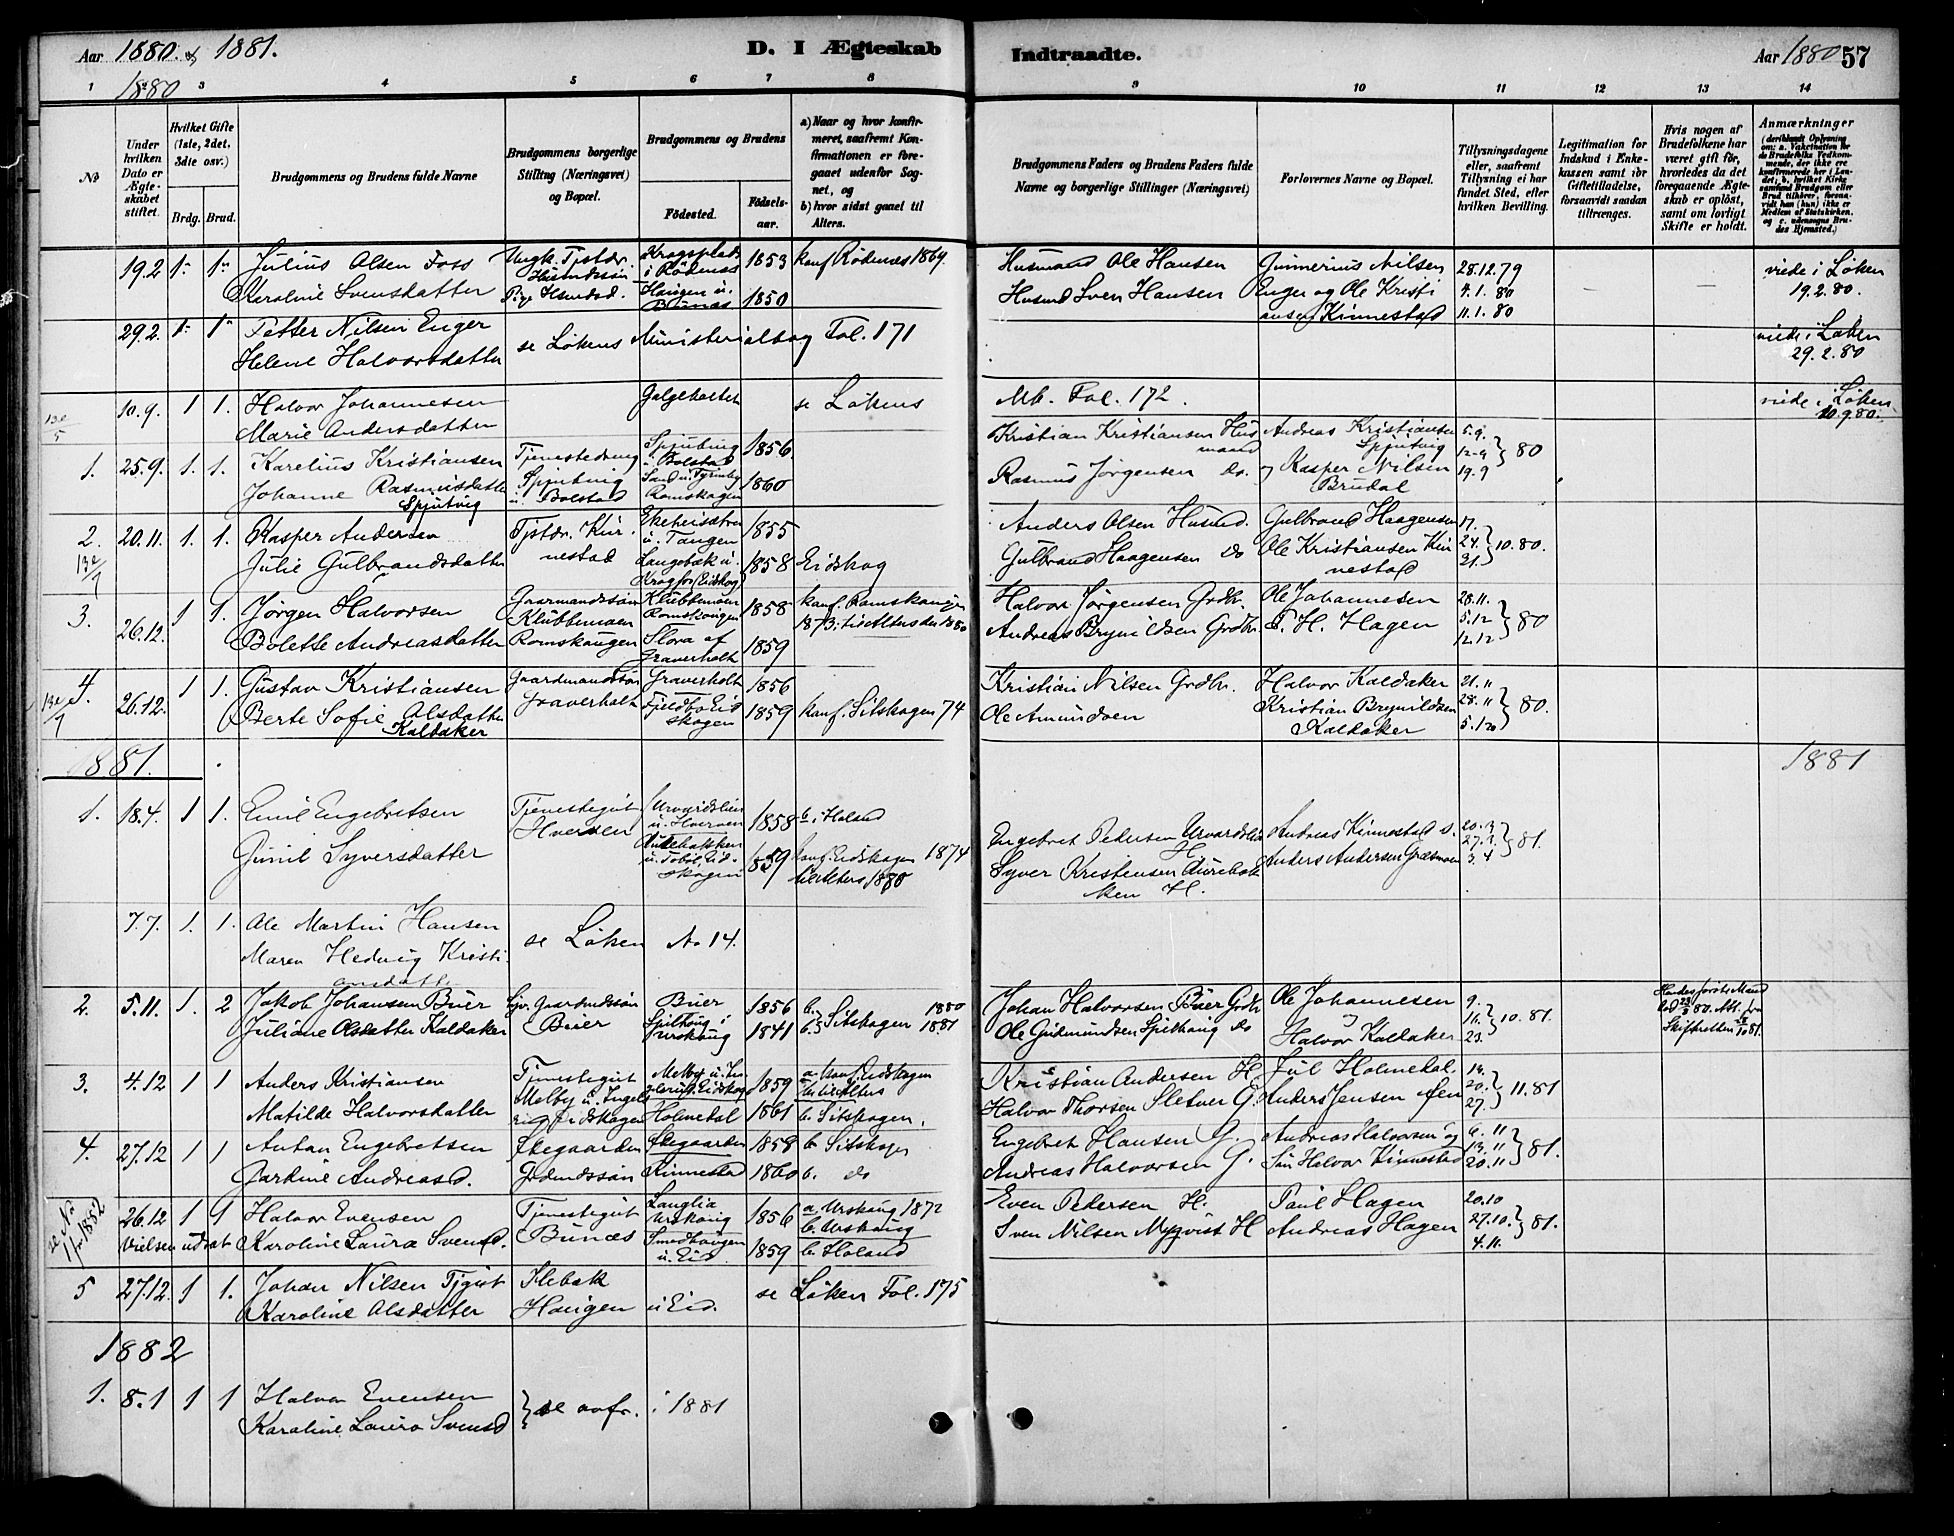 Aar 1880. og 1881.
D. I Ægteskab
Indtraadte.
Aar 1880 57
1 2 3 4 5 6 7 8 9 10 11 12 13 14
1880
No
Under hvilken Dato er Ægteskabet stiftet.
Hvilket Gifte (1ste, 2det, 3die osv.)
Brdg. Brud.
Brudgommens og Brudens fulde Navne
Brudgommens borgerlige Stilling (Næringsvei) og Bopæl.
Brudgommens og Brudens
Fødested.
Fødselsaar.
a) Naar og hvor konfirmeret, saafremt Konfirmationen er foregaaet udenfor Sognet, og
b) hvor sidst gaaet til Alters.
Brudgommens Faders og Brudens Faders fulde Navne og borgerlige Stillinger (Næringsvei)
Forlovernes Navne og Bopæl.
Tillysningsdagene eller, saafremt Tillysning ei har fundet Sted, efter hvilken Bevilling.
Legitimation for Indskud i Enkekassen samt for Giftetilladelse, forsaavidt saadan tiltrænges.
Hvis nogen af Brudefolkene har været gift før, hvorledes da det foregaaende Ægteskab er opløst, samt om lovligt Skifte er holdt.
Anmærkninger
19.2 1. 1. Julius Olsen Foss
Karoline Svensdatter
Ungk. Tjstdr. Husmdssøn
Pige Hsmdsd.
Kragsplads i Rødenes
Haugen u. Bunæs
1853
1850
konf. Rødenes 1869.
Husmand Ole Hansen
Husmd Sven Hansen
Gunnerius Nilsen
Enger og Ole Kristi
ansen Kinnestad
28.12.79
4.1.80
11.1.80
viede i Løken
19.2.80.
29.2. 1. 1. Petter Nilsen Enger
Helene Halvorsdatter
se Løkens Ministerialbog Fol. 171
viede i Løken
29.2.80
10.9. 1 1. Halvor Johannesen
Marie Andersdatter
Galgeholtet
se Løkens
Mb. Fol. 172.
viede i Løken
10.9.80.
1. 25.9. 1. 1. Karelius Kristiansen
Johanne Rasmusdatter
Spjutvig
Tjenestedreng
Spjutvig
u. Bolstad
Spjutvig
u. Bolstad
Romskogen
1856.
1860
Kristian Kristiansen Hus
mand
Rasmus Jørgensen do.
Andreas Kristiansen
Spjutvig
og Kasper Nilsen
Brudal
5.9.
12.9
19.9
80
2. 20.11. 1. 1. Kasper Andersen
Julie Gulbrandsdatter
Tjstdr. Kin
nestad
u. Tangen
Langebæk u.
Kragfos Eidskog
1855
1858
Eidskog
Anders Olsen Husmd.
Gulbrand Haagensen do
Gulbrand Haagensen
Ole Kristiansen Kin
nestad
17.
24.
31.
10.80.
3. 26.12. 1 1. Jørgen Halvorsen
Bolette Andreasdatter
Gaardmandssøn
Klubbemoen
Romskaugen
Klubbemoen
Romskougen
Slora af
Graverholt
1858
1859
konf. Romskougen
1873. til Alters do 1880
Halvor Jørgensen Grdbr.
Andreas Brynildsen Grdbr.
Ole Johannesen
P. H. Hagen
28.11.
5.12
12.12
80
4. 26.12. 1 1. Gustav Kristiansen
Berte Sofie Olsdatter
Kaldaker
Gaardmandssøn
Graverholt
Graverholt
Fjeldbo Eid
skogen
1856
1859
konf. Sitskogen 74
Kristian Nilsen Grdbr.
Ole Amundsen
Halvor Kaldaker
Kristian Brynildsen
Kaldaker
21.11
28.11
5.12
80.
1881.
1881
1. 18.4. 1 1. Emil Engebretsen
Gunil Syversdatter
Tjenestegut
Hverven
u. Hverven
1858
1859
b. i Høland
konf. Eidskogen 1874
til Alters 1880
Engebret Pedersen Urvardslien
H.
Syver Kristensen Aurebak
ken H.
Andreas Kinnestad s.
Anders Andersen Græsmoen
20.3.
27.3.
3.4
81.
7.7. 1. 1. Ole Martin Hansen
Maren Hedvig Kristi
ansdatter
se Løken No 14.
2. 5.11. 1. 2 Jakob Johansen Buer
Juliane Olsdatter Kaldaker
Gaardmdssøn
Buer
Buer
Spilhaug i
Urskoug
1856
1841
b. Sitskogen 1880
1881
Johan Halvorsen Buer Grdbr
Ole Gudmundsen Spilhoug do
Ole Johannesen
og
Halvor Kaldaker
9.
16.
23.
10.81.
Hendes første Mand
død 23/3 80. Att. fra
Skifteretten
3. 4.12 1 1 Anders Kristiansen
Matilde Halvorsdatter
Tjenestegut
Melby u. Ingels
rud Eidskogen
Holmedal
1859
1861
a. konf. Eidskogen
til Alters
b. Sitskogen.
Kristian Andersen H.
Halvor Thorsen Sletner G.
Jul Holmedal.
Anders Jensen Øen
13.
20.
27.
11.81
4. 27.12 1 1 Anton Engebretsen
Gardine Andreasd.
Ekegaarden
Grdmdssøn
Ekegaarden
Kinnestad
1858
1860
b. Sitskogen
b. do
Engebret Hansen G.
Andreas Halvorsen G.
Andreas Halvorsen og
Søn Halvor Kinnestad
6.11
13.11
20.11
81.
se No
1/ 1882
26.12 1 1 Halvor Evensen
Vielsen udsat Karoline Laura Svensd.
Tjenestegut
Bunæs
Langlia
Urskoug
Smedhaugen
u. Eid
1856
1859
a. Urskoug 1872
b. Urskoug
b. Høland
Even Pedersen H.
Sven Nilsen Myqvist H
Paul Hagen
Andreas Hagen
20.10
27.10.
4.11.
81.
5 27.12. 1 1. Johan Nilsen Tjgut
Karoline Olsdatter
Ilebæk
Haugen u Eid.
se Løken Fol. 175
1882
1. 8.1 1 1 Halvor Evensen
Karoline Laura Svensd
se ovfr. i 1881